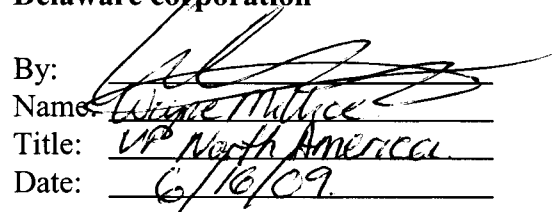 Delaware corporation
By:
Name: Wayne
Title: VP North America.
Date: 6/16/09.